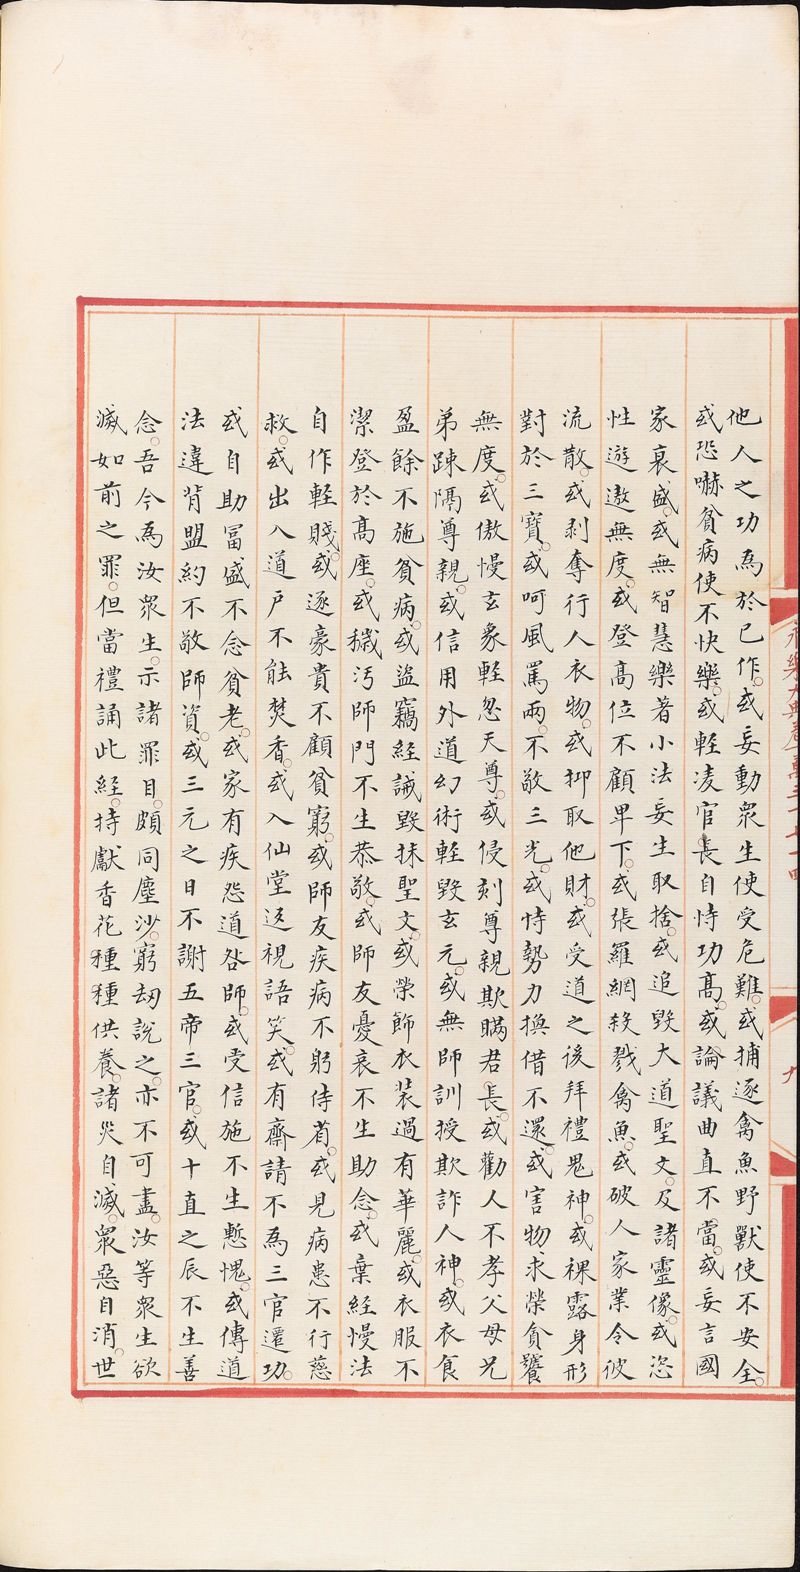 他人之功爲於已作。或妄動衆生使受危難。或捕逐禽魚野獸使不安全。
或恐嚇貧病使不快樂。或輕凌官長自恃功髙。或論議曲直不當。或妄言國
家衰盛。或無智慧樂著小法妄生取捨。或追毀大道聖文。及諸靈像。或恣
性遊遨無度。或登髙位不顧卑下。或張羅網殺戮禽魚。或破人家業令彼
流散。或剥奪行人衣物。或抑取他財。或受道之後拜禮鬼神。或裸露身形
對於三寶。或呵風罵雨。不敬三光。或恃勢力換借不還。或害物求榮貪饕
無度。或傲慢玄象輕忽天尊。或侵刻尊親欺瞞君長。或勸人不孝父母兄
弟踈隔尊親。或信用外道幻術輕毀玄元。或無師訓授欺詐人神。或衣食
盈餘不施貧病。或盜竊經誡毀抹聖文。或榮飾衣裝過有華麗。或衣服不
潔登於髙座。或穢汚師門不生恭敬。或師友憂哀不生助念。或棄經慢法
自作輕賤。或逐豪貴不顧貧窮。或師友疾病不躬侍省。或見病患不行慈
救。或出入道戸不能焚香。或入仙堂迯視語笑。或有齋請不爲三官遷功。
或自助冨盛不念貧老。或家有疾怨道咎師。或受信施不生慙愧。或傳道
法違背盟約不敬師資。或三元之日不謝五帝三官。或十直之辰不生善
念。吾今爲汝衆生。示諸罪目。頗同塵沙。窮劫說之。亦不可盡。汝等衆生欲
滅如前之罪。但當禮誦此經。持獻香花種種供養。諸災自滅。衆惡自消。世
永樂大典卷
九